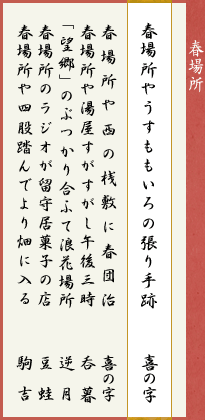 春場所
春場所やうすももいろの張り手跡　喜の字
春場所や西の桟敷に春団治　喜の字
春場所や湯屋すがすがし午後三時　呑暮
「望郷」のぶつかり合ふて浪花場所　逆月
春場所のラジオが留守居菓子の店　豆蛙
春場所や四股踏んでより畑に入る　駒吉